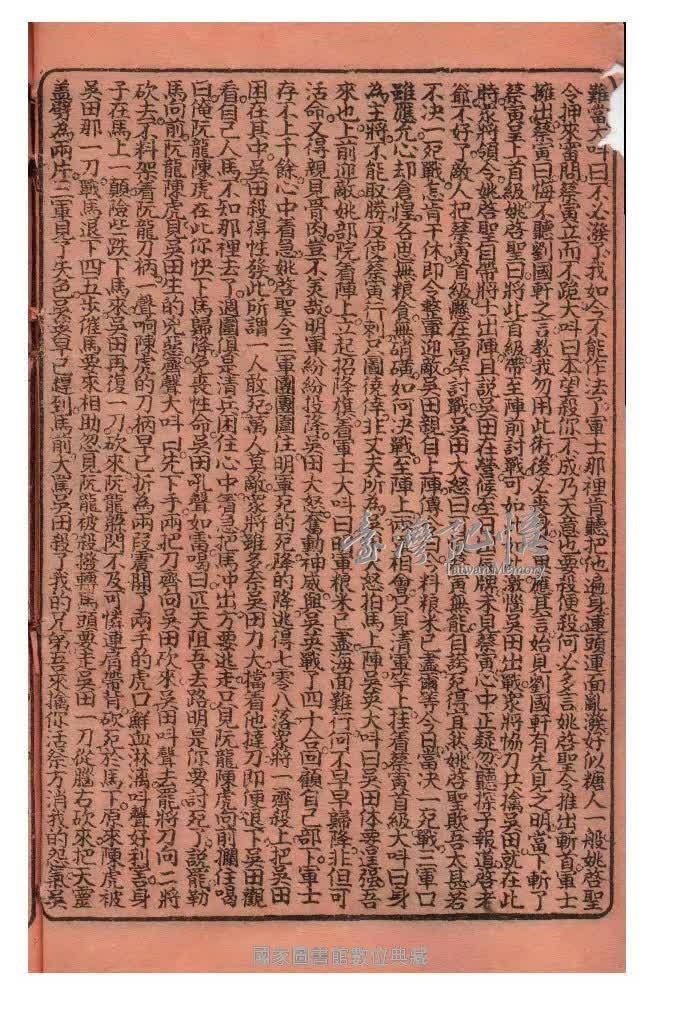 難當大叫曰不必潑了我如今不能作法了軍士那裡肯聽把他遍身連頭連面亂潑好似糖人一般姚啓聖
令押來審問蔡寅立而不跪大叫曰本望殺你不成乃天意也要殺便殺何必多言姚啓聖令推出斬首軍士
擁出蔡寅曰悔不聽劉國軒之言教我勿用此術後必來身應其言始見劉國軒有先見之明當下斬了
蔡寅呈上首級姚啓聖曰將此首級帶至陣前討戰可如激惱吳田出戰衆將協力共擒吳田就在此
時衆將領令姚啓聖自帶將士出陣且說吳田在營候至日出牌末不見蔡寅心中正疑忽聽探子報道啓老
爺不好了敵人把蔡寅首級懸在高竿討戰吳田大怒曰試寅無能自誇死得宜然姚啓聖欺吾太甚若
不决一死戰怎肯干休即令整軍迎敵吳田親自上陣傳人料粮米已盡爾等今日當决一死戰三軍口
雖應允心却倉惶各思無粮食無硝磺如何决戰至陣上兩相會只見清軍竿上挂着蔡寅首級大叫曰身
為主將不能取勝反使蔡寅行刺只圖僥倖非丈夫所為大怒拍馬上陣吳英大叫曰吳田休要逞强吾
來也上前迎敵姚部院看陣上立起招降旗着軍士大叫曰明軍粮米已盡海面難行何不早早歸降非但可
活命又得親見骨肉豈不美哉明軍紛紛投降吳田大怒奮動神威與吳英戰了四十合回顧自己部下軍士
存不上千餘心中着急姚啓聖令三軍團團圍住明軍死的死降的降逃得七零八落衆將一齊殺上把吳田
困在其中吳田殺得性發此所謂一人敢死萬人莫敵衆將雖多吞吳田力大擋看他撻刀即便退下吳田觀
看自己人馬不知那裡去了週圍俱是清兵困住心中着急把馬冲出方要逃走只見阮龍陳虎向前攔住喝
曰俺阮龍陳虎在此你快下馬歸降免喪性命吳田吼聲如雷喝曰匹夫阻吾去路明是你要討死了說罷勒
馬向前阮龍陳虎見吳田生的兇惡齊聲大叫曰先下手兩把刀齊向吳田砍來吳田叫聲去罷將刀向二將
砍去不料架着阮龍刀柄一聲响陳虎的刀柄早已折為兩段震開了兩手的虎口鮮血淋漓叫聲好利害身
子在馬上一顛險些跌下馬來吳田再復一刀砍來阮龍躲閃不及可憐連肩帶背砍死於馬下原來陳虎被
吳田那一刀戰馬退下四五步催馬要來相助忽見阮龍被殺撥轉馬頭要走吳田一刀從腦右砍來把天靈
盖劈為兩片三軍見了失色吳英早已趕到馬前大罵吳田殺了我的兄弟吾來擒你活祭方消我的怨氣吳
臺灣記憶
Taiwan Memory
國家圖書館數位典藏